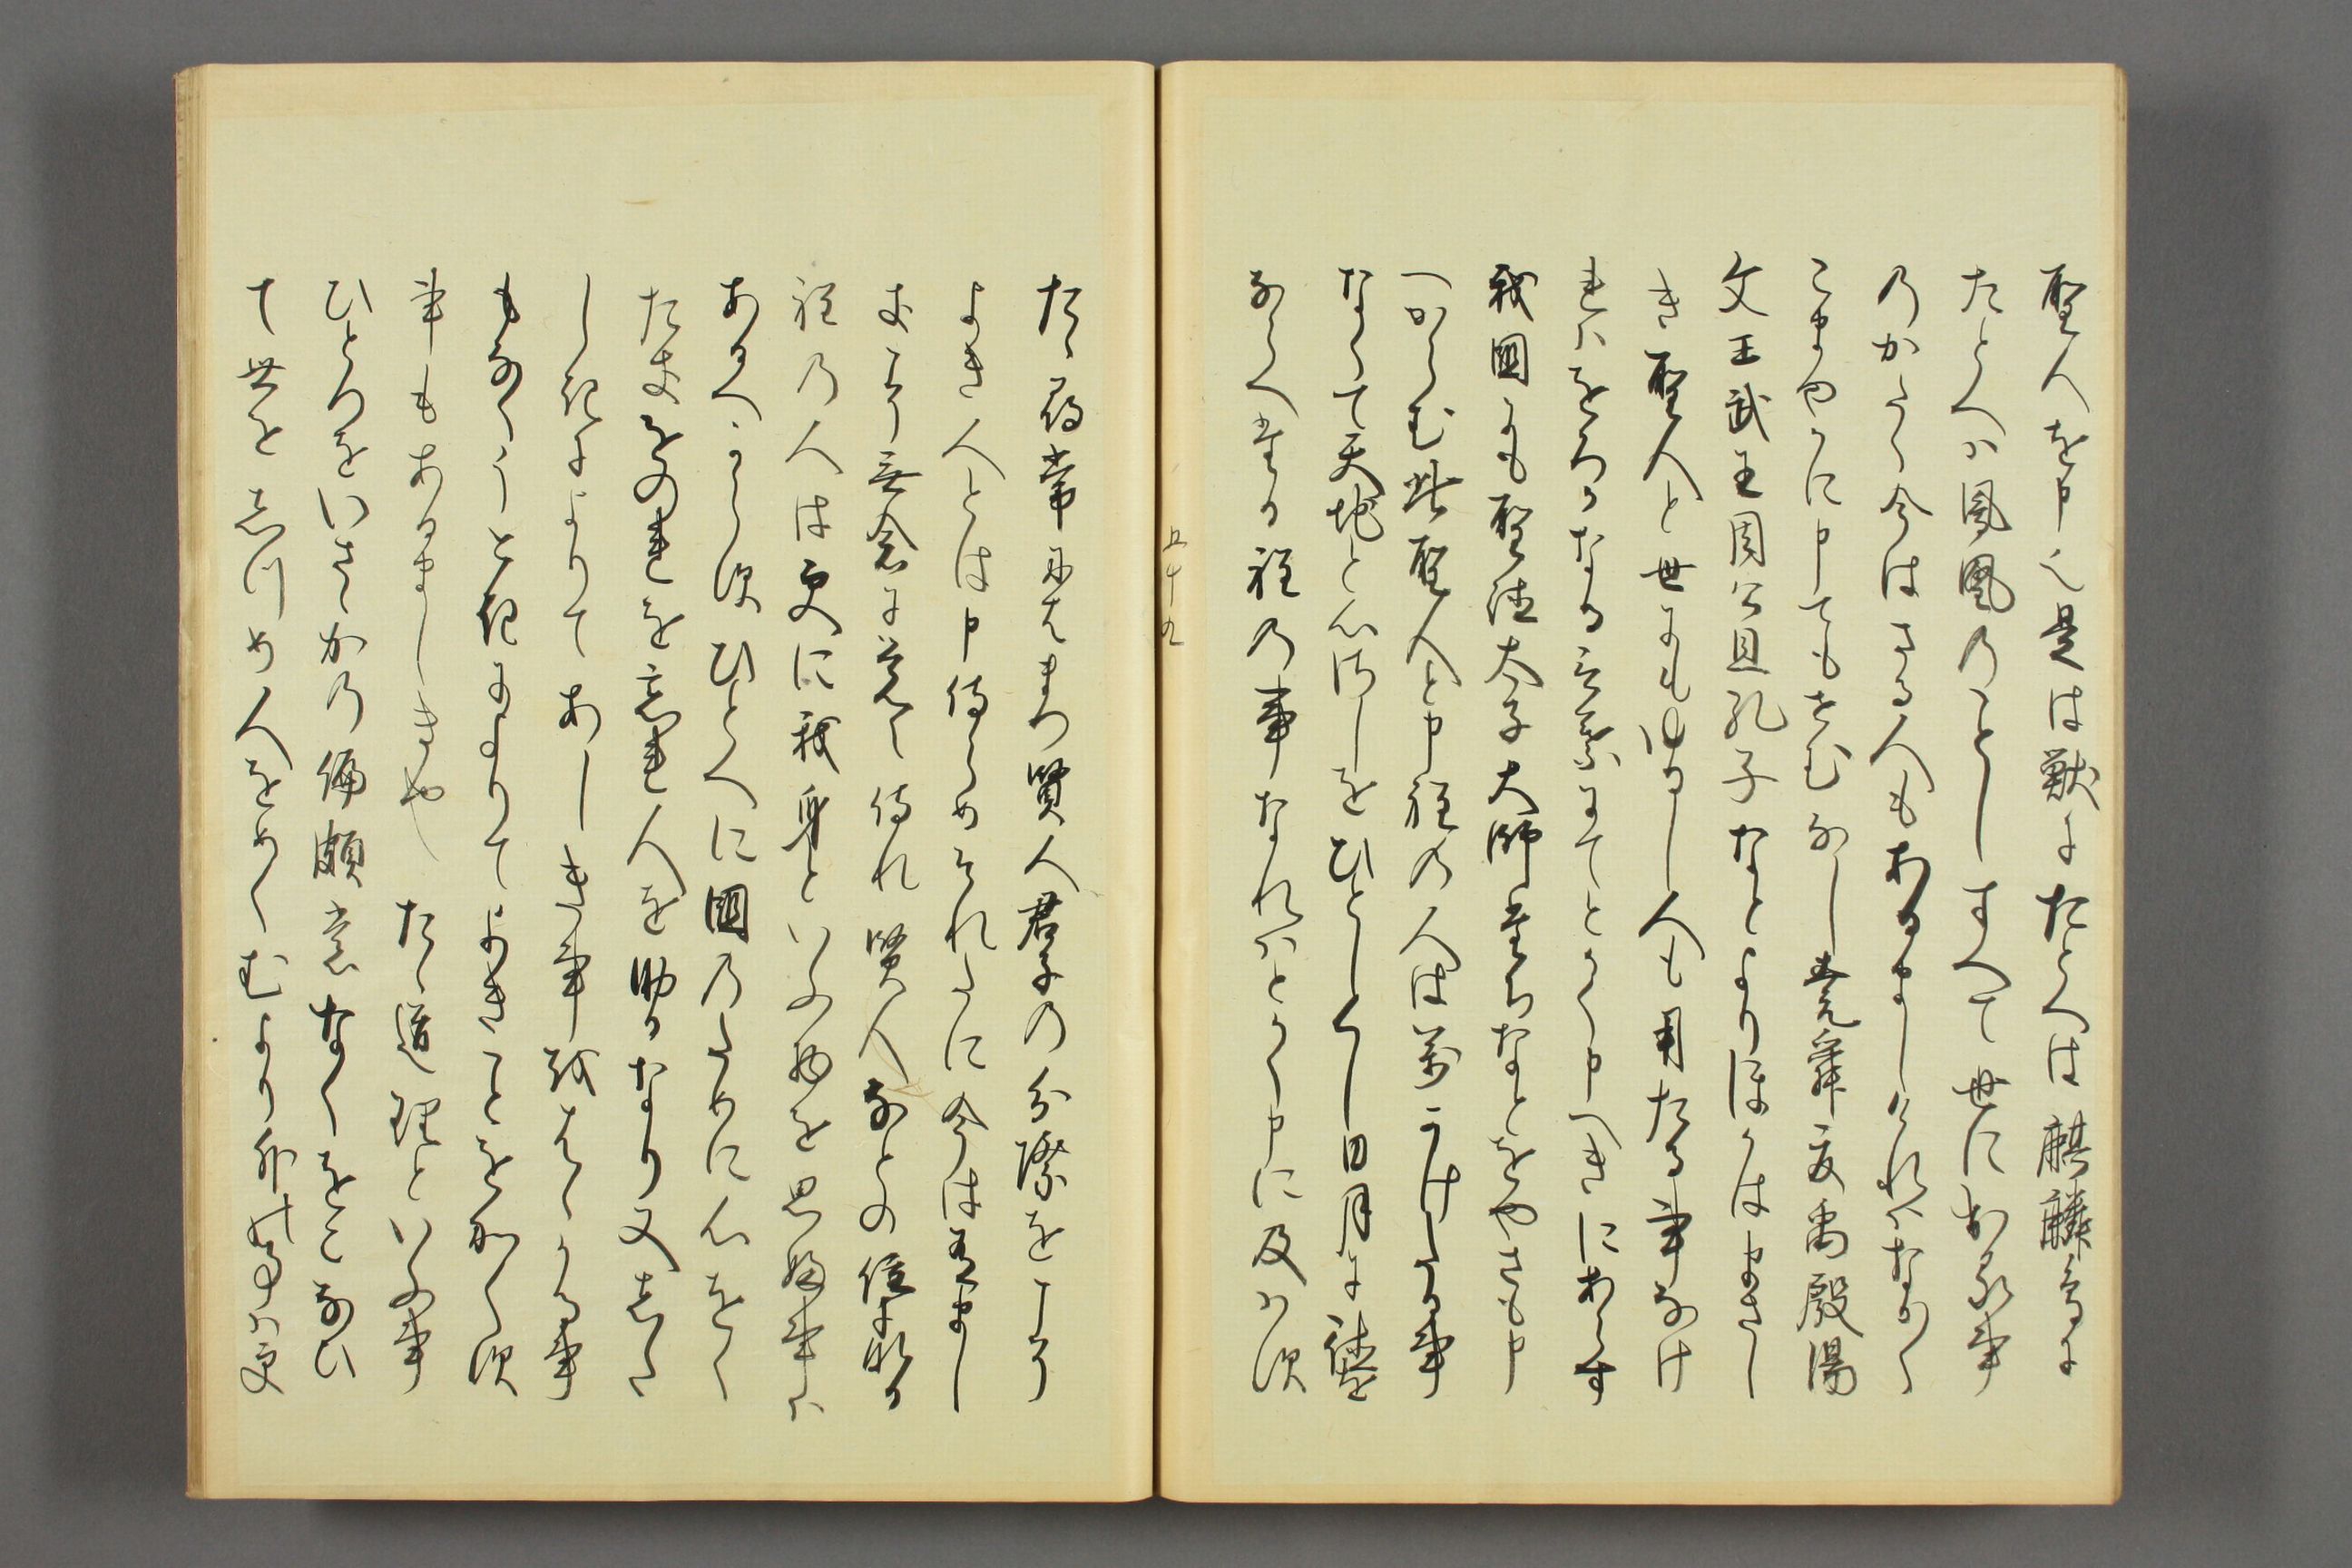 聖人を申也是は獣にたとへは麒麟鳥に
たとへは鳳凰のことしすへて世にある事
のかたく今はさる人もあるましけれはなかく
こまやかに申てもせむなし堯舜夏禹殷湯
文王武王周公旦孔子なとよりほかはまさし
き聖人と世にもゆるし人も用たる事なけ
れはをろかなる言葉にてとかく申へきにあらす
我国にも聖徳太子大師たちなとをやさも申
へからむ此聖人と申程の人は万かけたる事
なくて天地と心さしをひとしくし日月に徳を
ならへたる程の事なれはとかく申に及はす
五十九
たゝ尋常にはまつ賢人君子の分際をこそ
よき人とは申侍らめそれたに今は有まし
きこそ無念に覚て侍れ賢人なとの位になる
程の人は更に我身といふ物を思ふ事は
あるへからすひとへに国のために心をく
たきをのれを忘れ人を助るなり又したし
しきによりてあしき事をはゝかる事
もなくうときによりてよきことをかくす
事もあるましきやたゝ道理といふ事
ひとつをいさゝかの偏頗の意なくをこなひ
て世をしつめ人をめくむより外の事は更